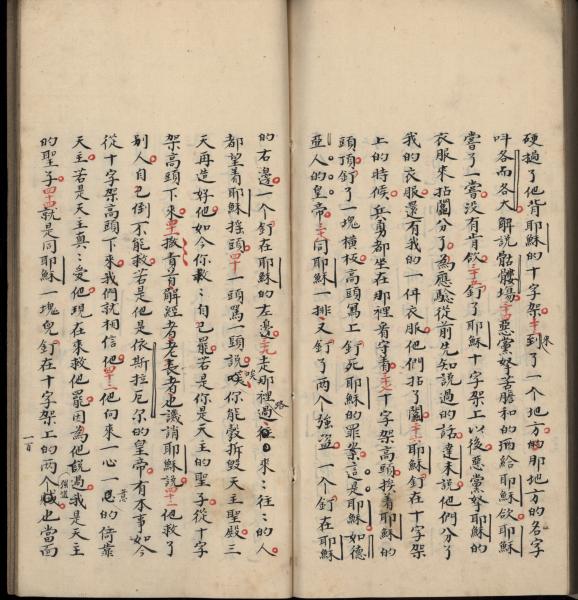 硬撾了他背耶穌的十字架來到了一个地方的那地方的名字
呌各而各大解說骷髏塲惡黨拏苦膽和的酒給耶穌飲耶穌
嘗了一嘗沒有肯飲釘了耶穌十字架上以後惡黨拏耶穌的
衣服來拈鬮分了為應驗從前先知說過的話達未說他們分了
我的衣服還有我的一件衣服他們拈了鬮耶穌釘在十字架
上的時候兵勇都坐在那裡看守着十字架高頭挨着耶穌的
頭頂釘了一塊橫板高頭寫上釘死耶穌的罪案這是耶穌如德
亞人的皇帝同耶穌一排又釘了两个強盗一个釘在耶穌
的右邊一个釘在耶穌的左邊走那裡過路徃來〻徃〻的人
都望着耶穌搖頭四十一頭罵一頭說唉你能彀拆毀天主聖殿三
天再造好他如今你救〻自己罷若是你是天主的聖子從十字
架高頭下來首解經者老長者也譏誚耶穌說他救了
別人自己倒不能救若是他是依斯拉厄尔的皇帝有本事如今
從十字架高頭下來我們就相信他他向來一心一意的倚靠
天主若是天主真〻受他現在來救他罷因為他說過我是天主
的聖子四十四就是同耶穌一塊兒釘在十字架上的两個賊強盗也當面
一百